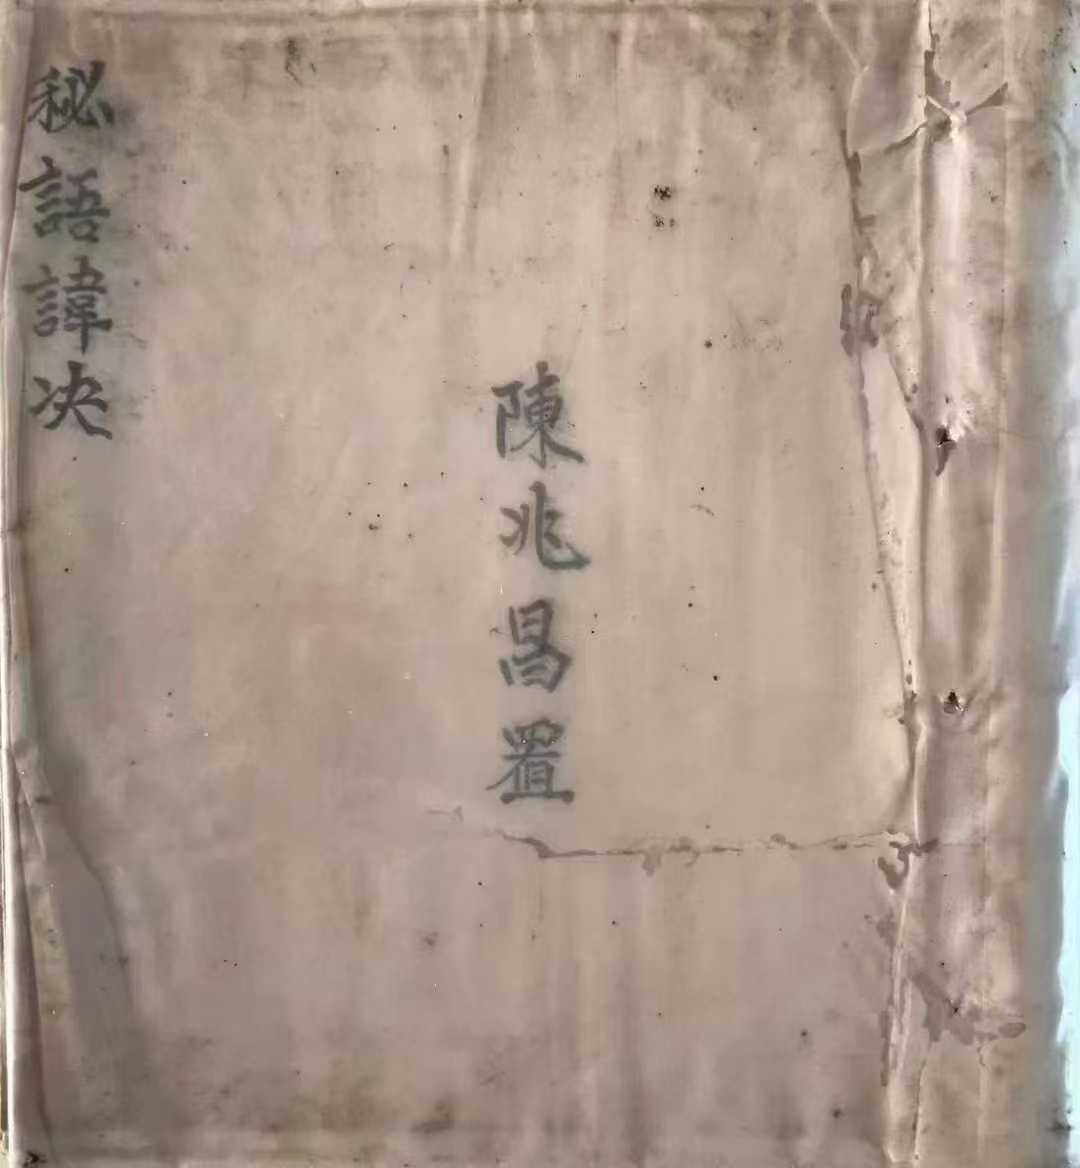 秘語諱决
陳兆昌置